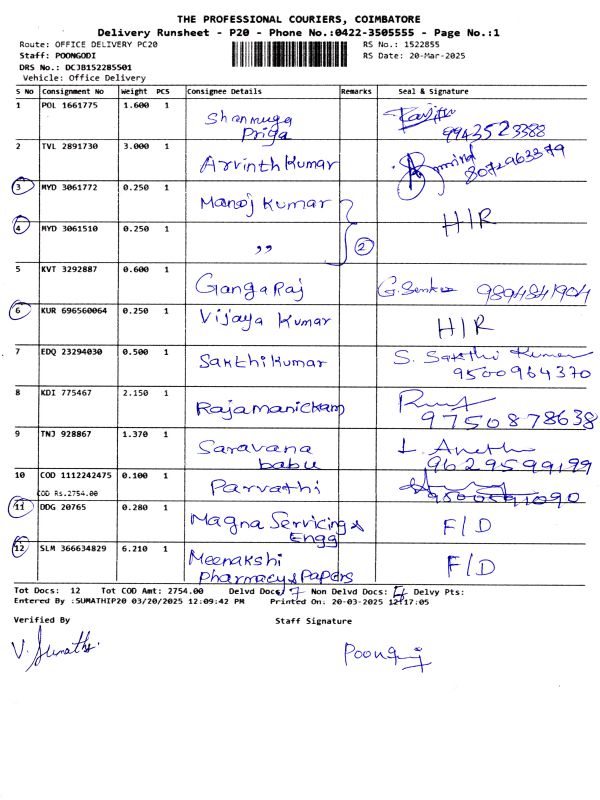 THE PROFESSIONAL COURIERS, COIMBATORE
Delivery Runsheet - P20 - Phone No.:0422-3505555 - Page No.:1
Route: OFFICE DELIVERY PC20 RS No.: 1522855
Staff: POONGODI RS Date: 20-Mar-2025
DRS No.: DCJB152285501
Vehicle: Office Delivery
S No Consignment No Weight PCS Consignee Details Remarks Seal & Signature
1 POL 1661775 1.600 1 Shanmuga
Priya 9943523388
2 TVL 2891730 3.000 1 Arvinth Kumar 8072963379
3 MYD 3061772 0.250 1 Manoj Kumar H/R
4 MYD 3061510 0.250 1 ,, 2
5 KVT 3292887 0.600 1 Gangaraj 9894841904
6 KUR 696560064 0.250 1 Vijaya Kumar H/R
7 EDQ 23294030 0.500 1 Sakthikumar S. Sakthi Kumar
9500964370
8 KDI 775467 2.150 1 Rajamanickam
9750878638
9 TNJ 928867 1.370 1 Saravana
babu 9629599199
10 COD 1112242475 0.100 1 Parvathi 9500591090
COD Rs.2754.00
11 DDG 20765 0.280 1 Magna Servicing &
Engg F/D
12 SLM 366634829 6.210 1 Meenakshi
Pharmacy & Papers F/D
Tot Docs: 12 Tot COD Amt: 2754.00 Delvd Docs: 7 Non Delvd Docs: 5 Delvy Pts:
Entered By :SUMATHIP20 03/20/2025 12:09:42 PM Printed On: 20-03-2025 12:17:05
Verified By Staff Signature
V. Sumathi